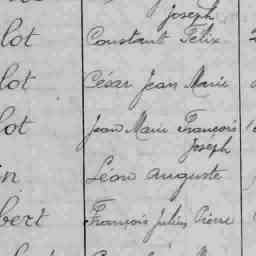 Joseph
lot Constant Félix
lot César Jean Marie
lot Jean Marie François
Joseph
in Léon Auguste
bert François Julien Pierre